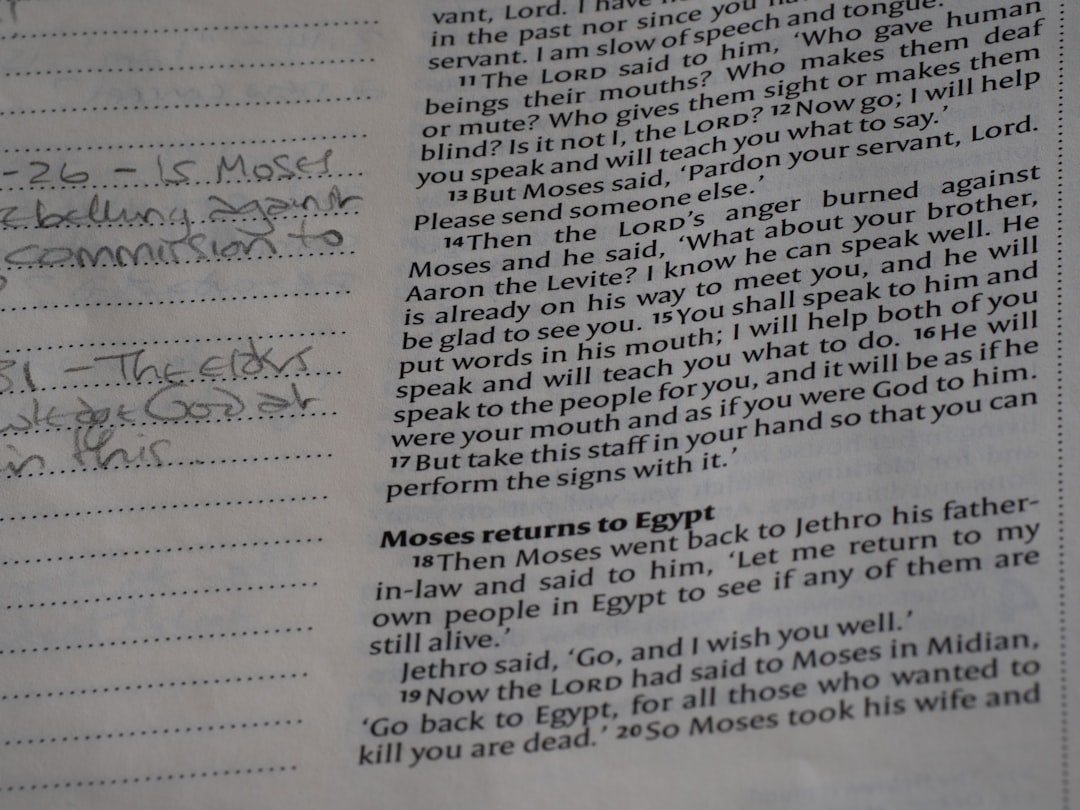 -26 - Is Moses
ebelling against
commission to
?
31 - The elders
God at
in this
vant, Lord. I have
in the past nor since you
servant. I am slow of speech and tongue.'
11 The LORD said to him, 'Who gave human
beings their mouths? Who makes them deaf
or mute? Who gives them sight or makes them
blind? Is it not I, the LORD? 12 Now go; I will help
you speak and will teach you what to say.'
13 But Moses said, 'Pardon your servant, Lord.
Please send someone else.'
14 Then the LORD'S anger burned against
Moses and he said, 'What about your brother,
Aaron the Levite? I know he can speak well. He
is already on his way to meet you, and he will
be glad to see you. 15 You shall speak to him and
put words in his mouth; I will help both of you
speak and will teach you what to do. 16 He will
speak to the people for you, and it will be as if he
were your mouth and as if you were God to him.
17 But take this staff in your hand so that you can
perform the signs with it.'
Moses returns to Egypt
18 Then Moses went back to Jethro his father-
in-law and said to him, 'Let me return to my
own people in Egypt to see if any of them are
still alive.'
Jethro said, 'Go, and I wish you well.'
19 Now the LORD had said to Moses in Midian,
'Go back to Egypt, for all those who wanted to
kill you are dead.' 20 So Moses took his wife and